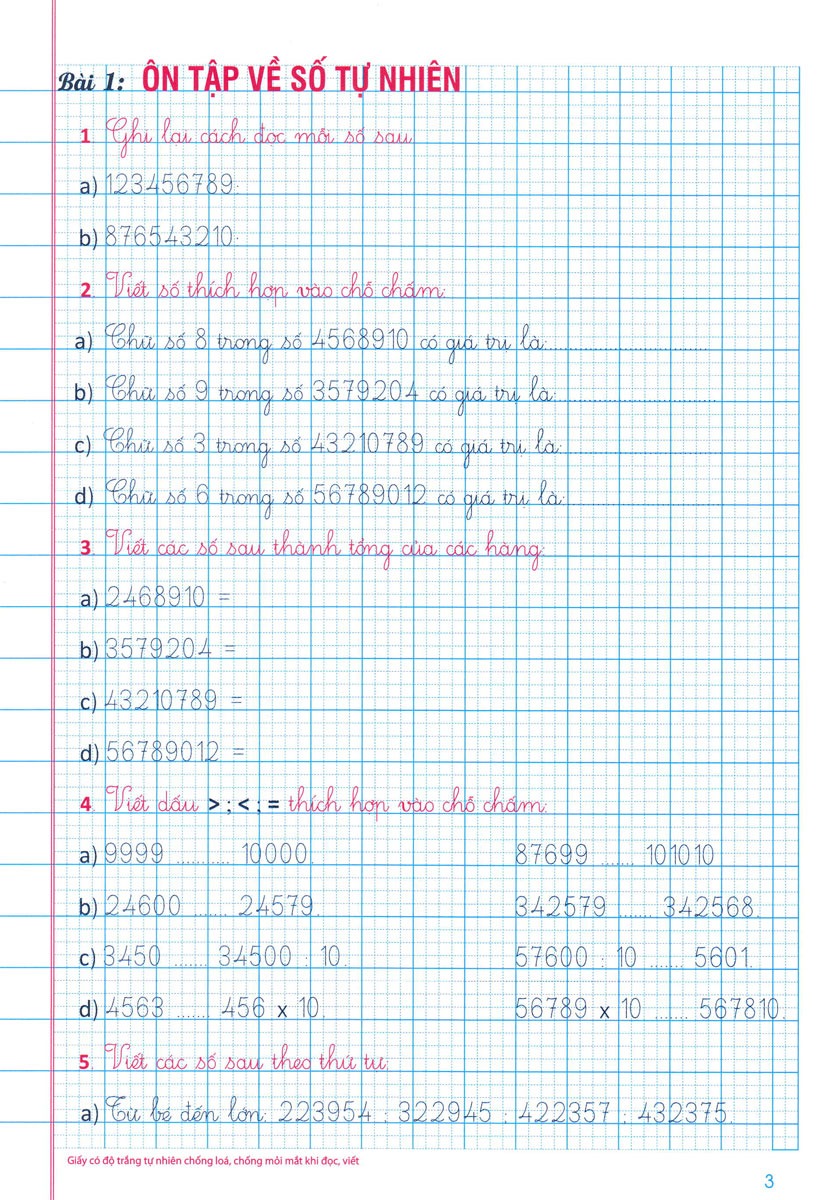 Bài 1: ÔN TẬP VỀ SỐ TỰ NHIÊN
1. Ghi lại cách đọc mỗi số sau
a) 123456789:
b) 876543210:
2. Viết số thích hợp vào chỗ chấm:
a) Chữ số 8 trong số 4568910 có giá trị là:..............................
b) Chữ số 9 trong số 3579204 có giá trị là:..............................
c) Chữ số 3 trong số 43210789 có giá trị là:..............................
d) Chữ số 6 trong số 56789012 có giá trị là:..............................
3. Viết các số sau thành tổng của các hàng:
a) 2468910 =
b) 3579204 =
c) 43210789 =
d) 56789012 =
4. Viết dấu > ; < ; = thích hợp vào chỗ chấm:
a) 9999 ........... 10000. 87699 ....... 101010
b) 24600 ....... 24579. 342579 ....... 342568.
c) 3450 ....... 34500 : 10. 57600 : 10 ....... 5601.
d) 4563 ....... 456 x 10. 56789 x 10 ....... 567810.
5. Viết các số sau theo thứ tự:
a) Từ bé đến lớn: 223954 ; 322945 ; 422357 ; 432375.
Giấy có độ trắng tự nhiên chống loá, chống mỏi mắt khi đọc, viết
3